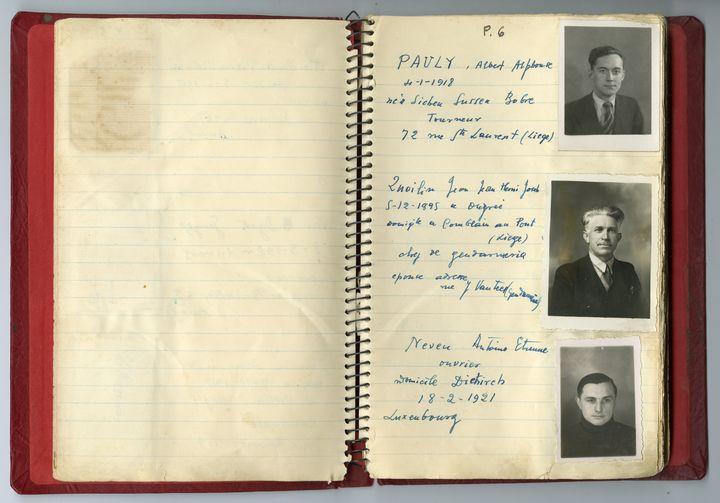 P. 6
PAULY, Albert Alphonse
4-1-1918
né à Sichen Sussen Bobre
Tourneur
72 rue Ste Laurent (Liege)
Jean Jean Henri
5-12-1895 a Ougré
a Comblain au Pont
(Liege)
chef de gendarmerie
epouse adresse
rue
Neven Antoine Etienne
ouvrier
domicile Diekirch
18-2-1921
Luxembourg